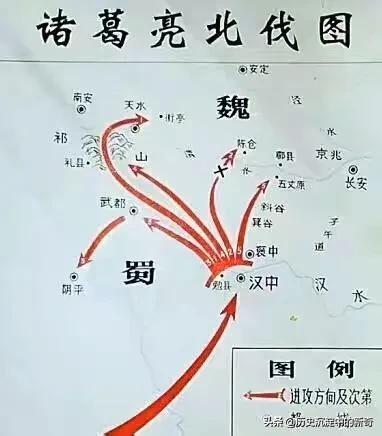 诸葛亮北伐图
安定
南安
天水
街亭
魏
泾
水
祁
山
渭
水
陈仓
郿县
京兆
礼县
五丈原
长安
武都
斜谷
箕谷
子
午
道
褒中
3 1 4 2 5
蜀
勉县
汉中
汉
水
阴平
图例
进攻方向及次第
头条 @历史沉淀中的新奇